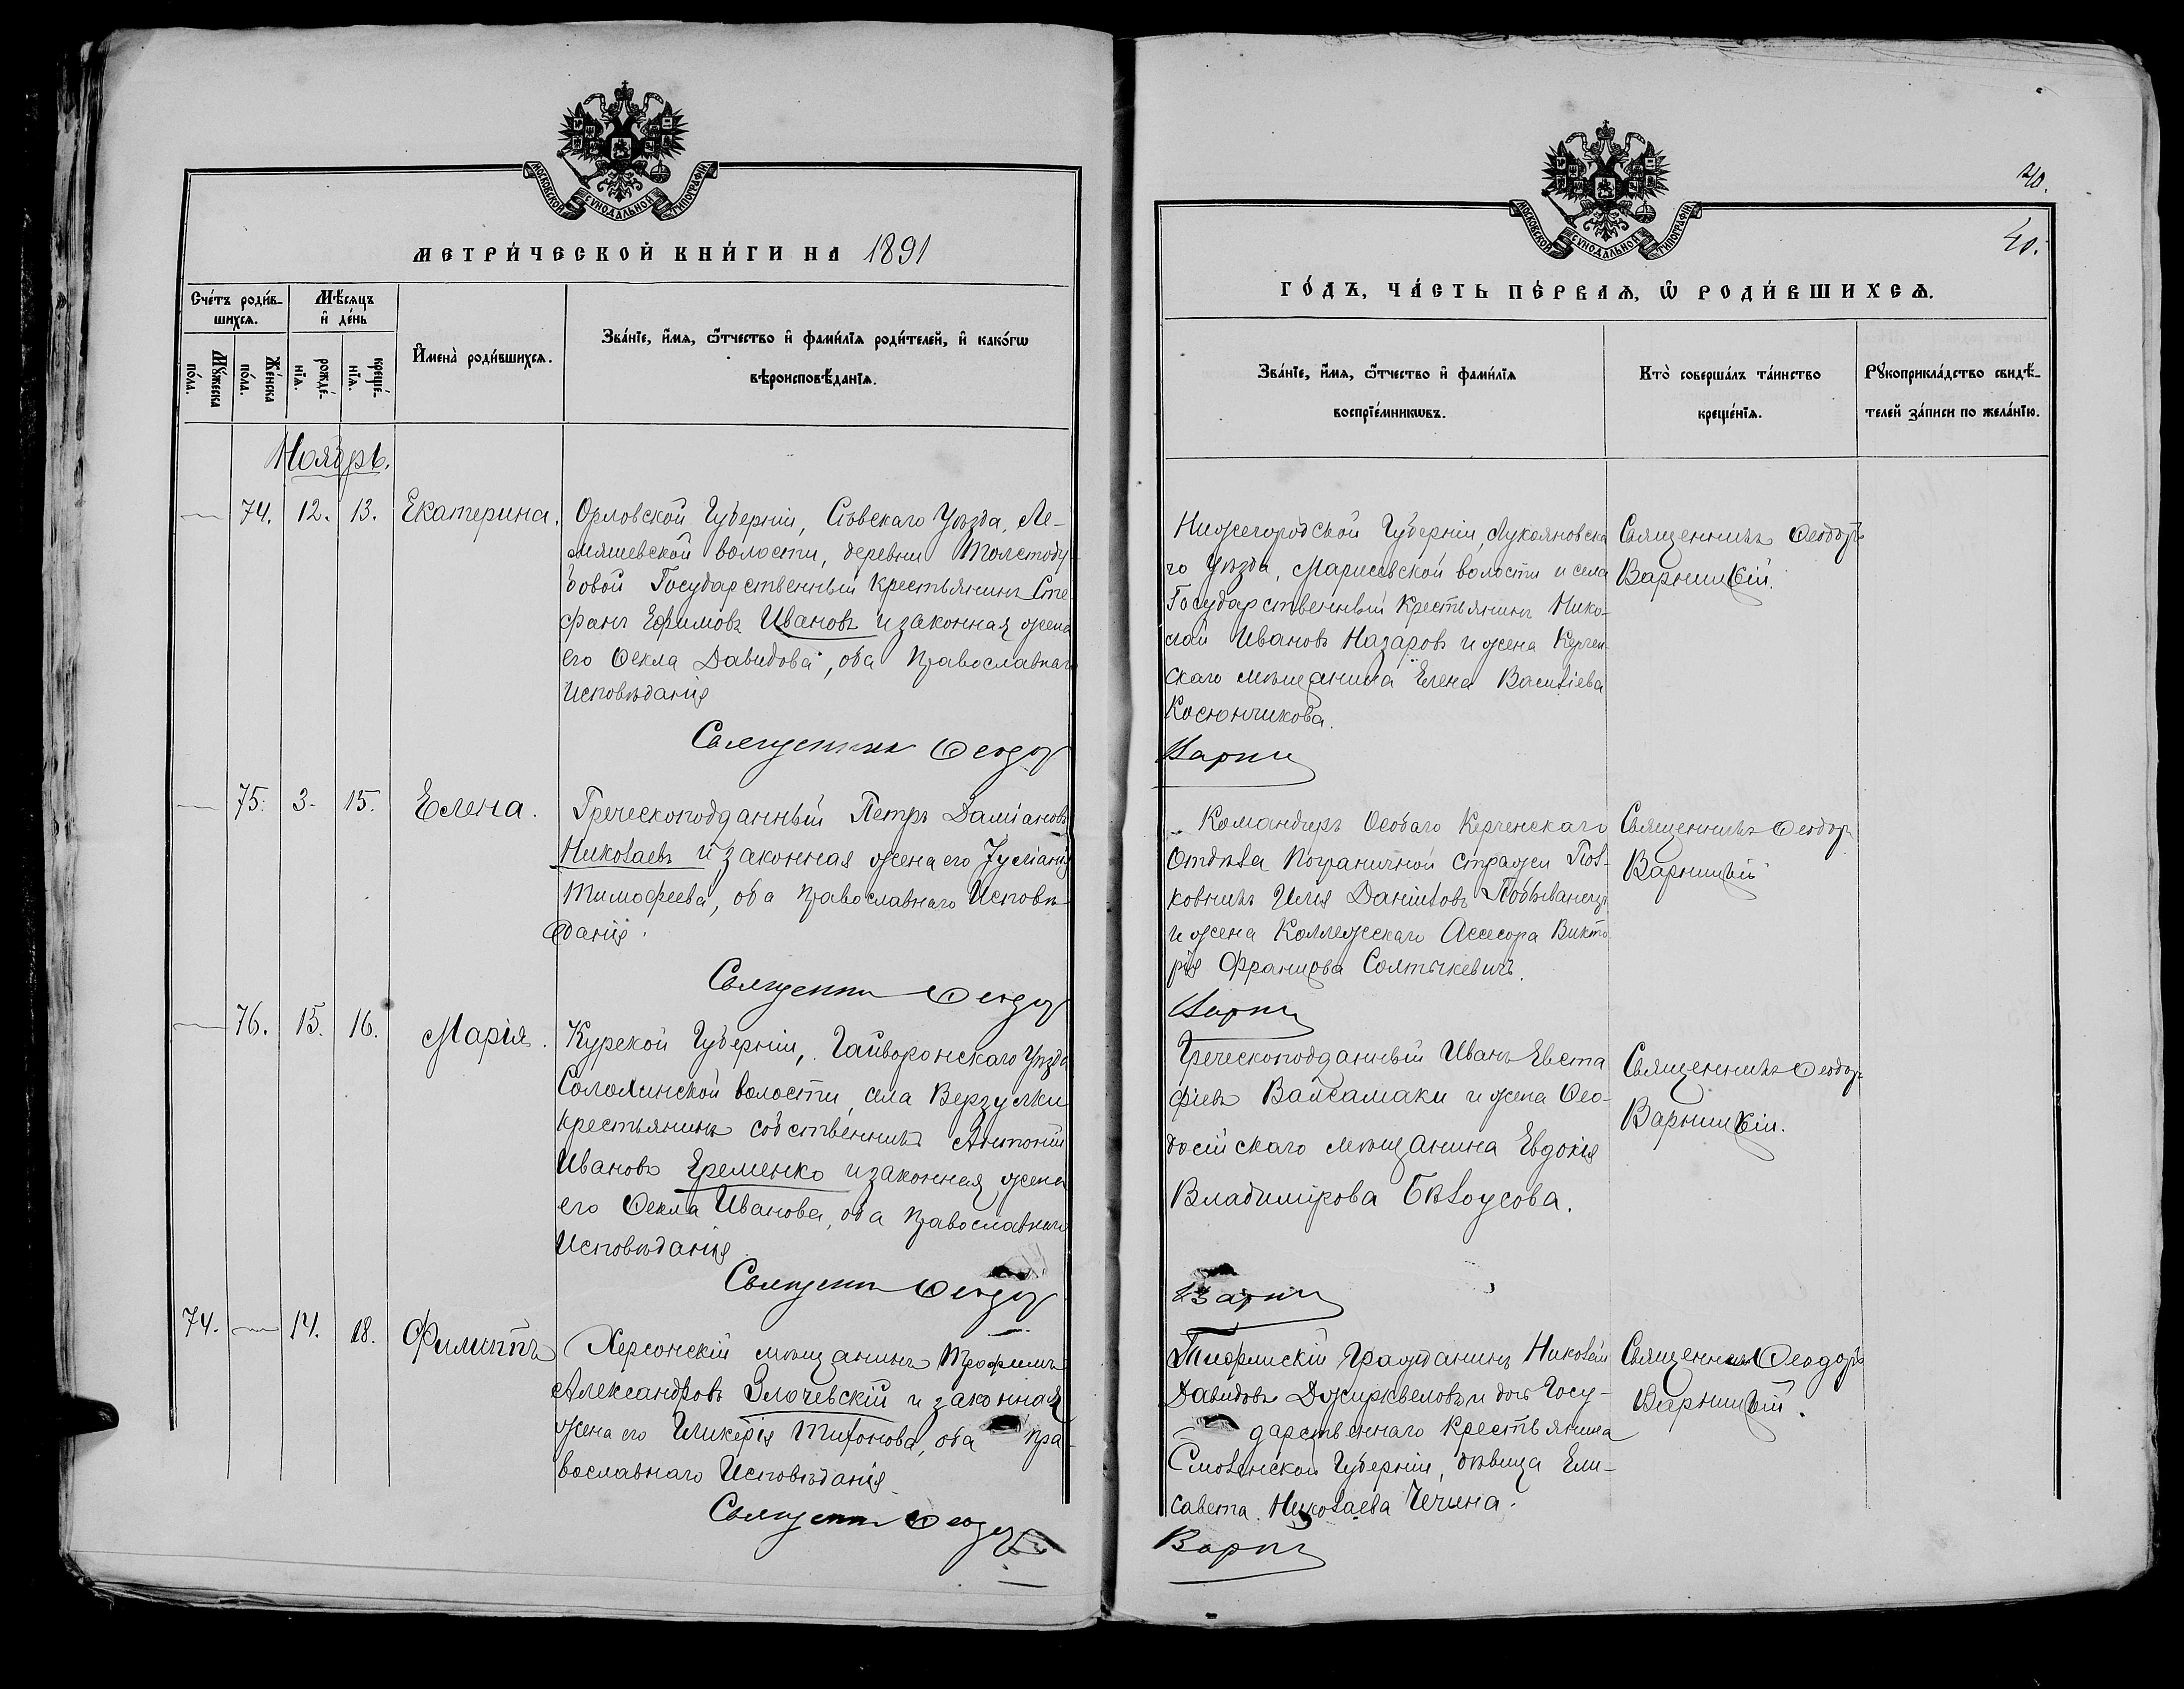 МОСКОВСКОЙ СѴНОДАЛЬНОЙ ТИПОГРАФІИ.
МЕТРИ́ЧЕСКОЙ КНИ́ГИ НА 1891
Сче́тъ роди́в-
шихсѧ.
Мѣ́сѧцъ
и҆ де́нь
Мꙋ́жеска
по́ла.
Же́нска
по́ла.
рожде́-
нїѧ.
креще́-
нїѧ.
И҆мена̀ роди́вшихсѧ.
Зва́нїе, и҆́мѧ, ѻ҆́тчество и҆ фами́лїѧ роди́телей, и҆ како́гѡ
вѣроисповѣ́данїѧ.
Ноябрь.
— 74. 12. 13. Екатерина.
Орловской Губерніи, Сѣвскаго Уѣзда, Ле-
мяшевской волости, деревни Толстоду-
бовой Государственный крестьянинъ Сте
фанъ Ефимовъ Ивановъ и законная жена
его Ѳекла Давидова, оба Православнаго
Исповѣданія
Священникъ Ѳеодор
— 75. 3. 15. Елена.
Греческоподданный Петръ Даміановъ
Николаевъ и законная жена его Іуліанія
Тимофеева, оба Православнаго Исповѣ
данія.
Священни Ѳеодор
— 76. 15. 16. Марія.
Курской Губерніи, Гайворонскаго Уѣзда
Солохинской волости, села Верзулки
крестьянинъ собственникъ Антоній
Ивановъ Еременко и законная жена
его Ѳекла Иванова, оба Православнаго
Исповѣданія
Священни Ѳеодор
74. — 14. 18. Филиппъ
Херсонскій мѣщанинъ Трофимъ
Александровъ Злочевскій и законная
жена его Гликерія Тихонова, оба Пра-
вославнаго Исповѣданія
Священни Ѳеодор
40.
40.
МОСКОВСКОЙ СѴНОДАЛЬНОЙ ТИПОГРАФІИ.
ГО́ДЪ, ЧА́СТЬ ПЕ́РВАѦ, Ѽ РОДИ́ВШИХСѦ.
Зва́нїе, и҆́мѧ, ѻ҆́тчество и҆ фами́лїѧ
воспрїе́мникѡвъ.
Кто̀ соверша́лъ та́инство
креще́нїѧ.
Рꙋкоприкла́дство свидѣ́-
телей за́писи по жела́нїю.
Нижегородской Губерніи, Лукояновска
го Уѣзда, Марисевской волости и села
Государственный Крестьянинъ Нико-
лай Ивановъ Назаровъ и жена Керчен-
скаго мѣщанина Елена Василіева
Косюнчикова.
Священникъ Ѳеодоръ
Варницкій.
Варни
Командиръ Особаго Керченскаго
Отдѣла Пограничной стражи Пол-
ковникъ Илія Даніиловъ Побѣванецъ
и жена Коллежскаго Ассесора Викто
рія Францова Солтыкевичъ.
Священникъ Ѳеодор
Варницкій
Варни
Греческоподданный Иванъ Евста
фіевъ Валсамаки и жена Ѳео-
досійскаго мѣщанина Евдокія
Владимірова Бѣлоусова.
Священникъ Ѳеодоръ
Варницкій.
Варни
Тифлискій Гражданинъ Николай
Давидовъ Джирквеловъ и дочь Госу-
дарственнаго крестьянина
Смоленской Губерніи, дѣвица Ели-
савета Николаева Чечина.
Священникъ Ѳеодоръ
Варницкій.
Варни